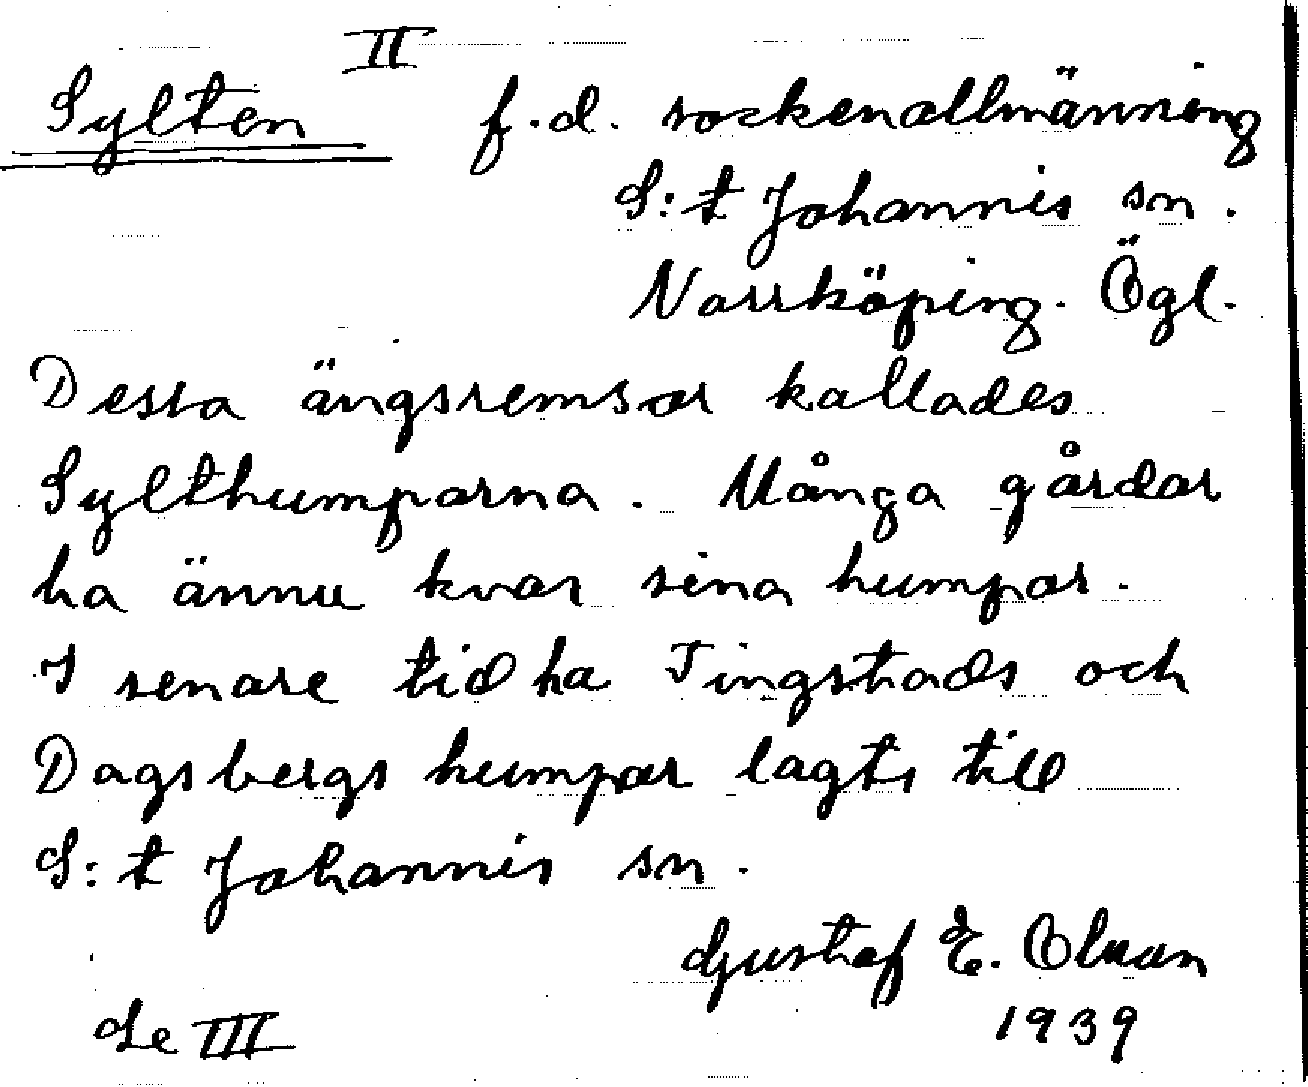 II
Sylten f.d. sockenallmänning
S:t Johannis sn.
Norrköping. Ögl.
Dessa ängsremsor kallades
Sylthumparna. Många gårdar
ha ännu kvar sina humpar.
I senare tid ha Tingstads och
Dagsbergs humpar lagts till
S:t Johannis sn.
Gustaf E. Olsson
Se III 1939